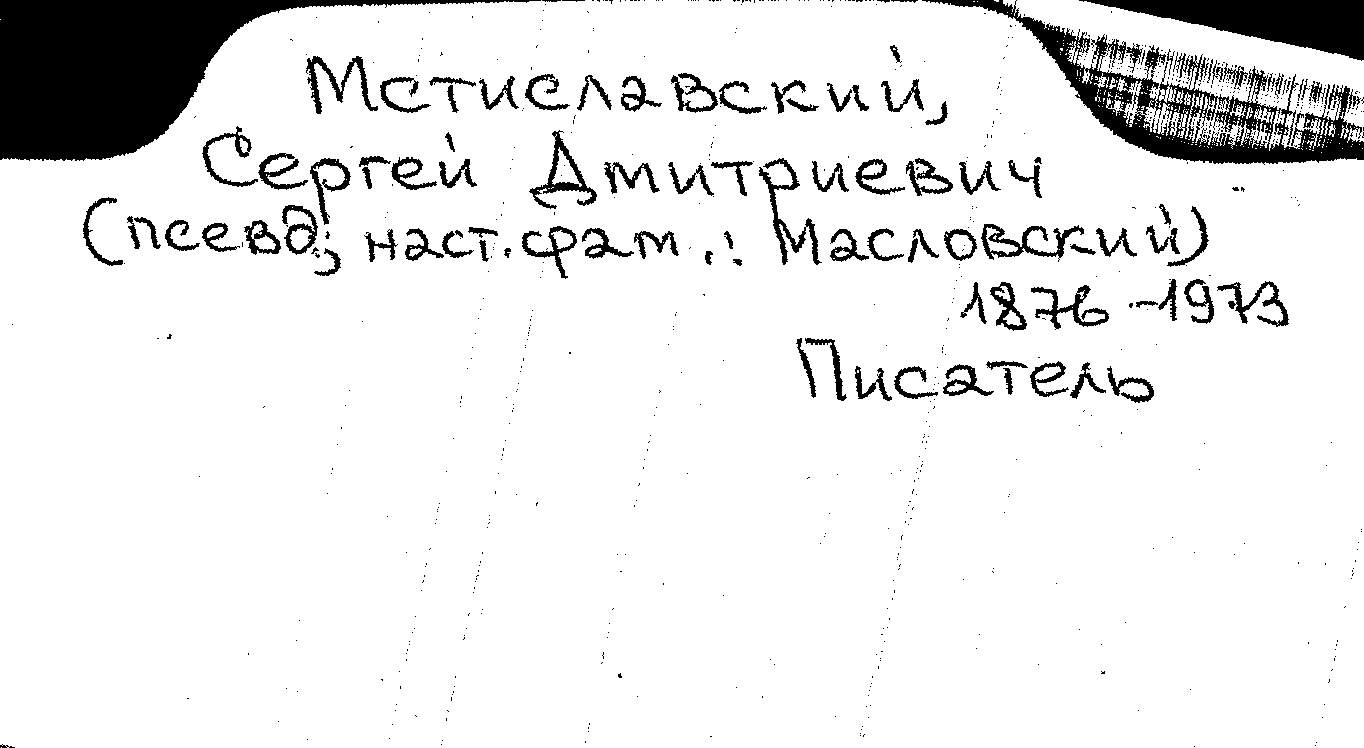 Мстиславский,
Сергей Дмитриевич
(псевд.; наст. фам.: Масловский)
1876-1973
Писатель